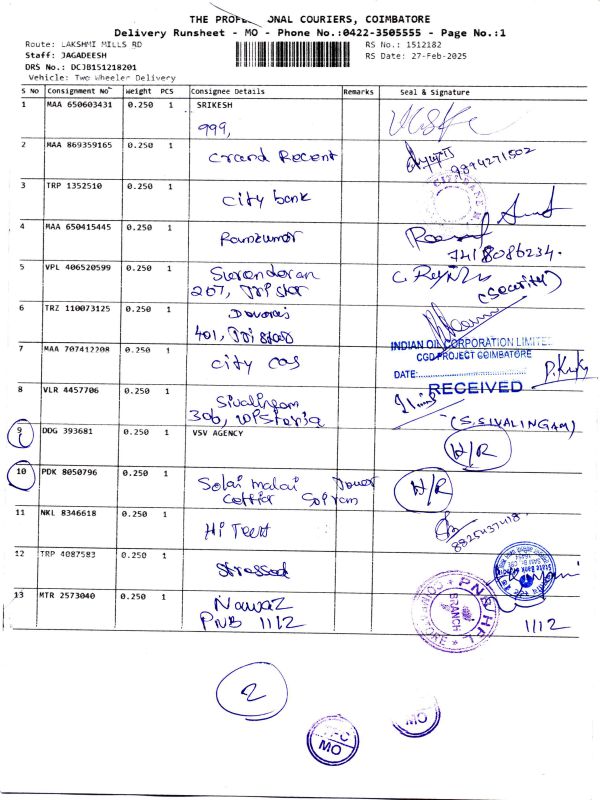 THE PROFESSIONAL COURIERS, COIMBATORE
Delivery Runsheet - MO - Phone No.:0422-3505555 - Page No.:1
Route: LAKSHMI MILLS RD RS No.: 1512182
Staff: JAGADEESH RS Date: 27-Feb-2025
DRS No.: DCJB151218201
Vehicle: Two Wheeler Delivery
S No Consignment No Weight PCS Consignee Details Remarks Seal & Signature
1 MAA 650603431 0.250 1 SRIKESH
999,
2 MAA 869359165 0.250 1
Grand Recent 9894271502
3 TRP 1352510 0.250 1
city bank
CITY BANK
4 MAA 650415445 0.250 1
Ramkumar
7418086234.
5 VPL 406520599 0.250 1 Surendoran
207, Tristar (Security)
6 TRZ 110073125 0.250 1
401, Tristar
7 MAA 707412208 0.250 1 INDIAN OIL CORPORATION LIMITED
city cas CGD PROJECT COIMBATORE
DATE:
RECEIVED
8 VLR 4457706 0.250 1 Sivalingam
306, Wisteria (S.SIVALINGAM)
9 DDG 393681 0.250 1 VSV AGENCY
H/R
10 PDK 8050796 0.250 1
Solai malai Tower H/R
11 NKL 8346618 0.250 1
Hi Tech 8825437418
12 TRP 4087583 0.250 1
Stressed
State Bank of India
13 MTR 2573040 0.250 1 Nawaz
PNB 1112 1112
PNBHFL
BRANCH
COIMBATORE
2
MO
MO